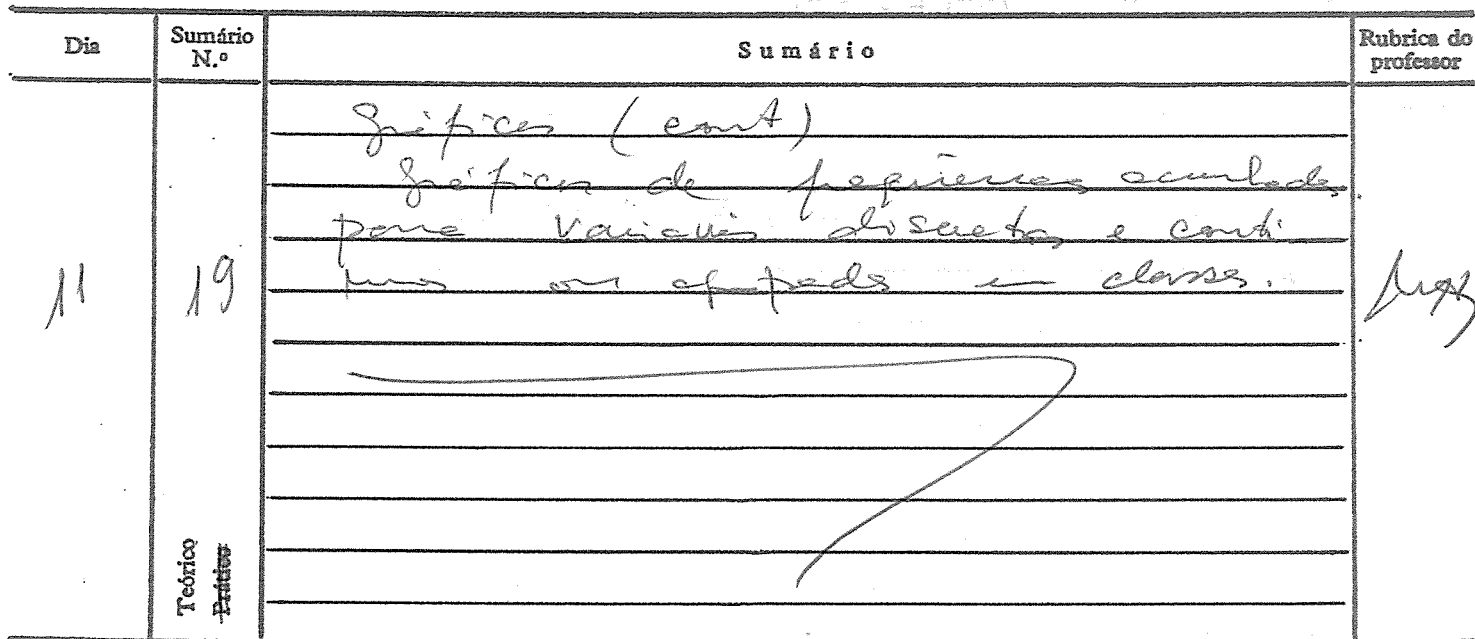 Dia
Sumário N.º
Sumário
Rubrica do professor
11
19
Gráficos (cont)
Gráficos de frequências acumuladas
para variáveis discretas e contí-
nuas ou agrupadas em classes.
Teórico
Prático